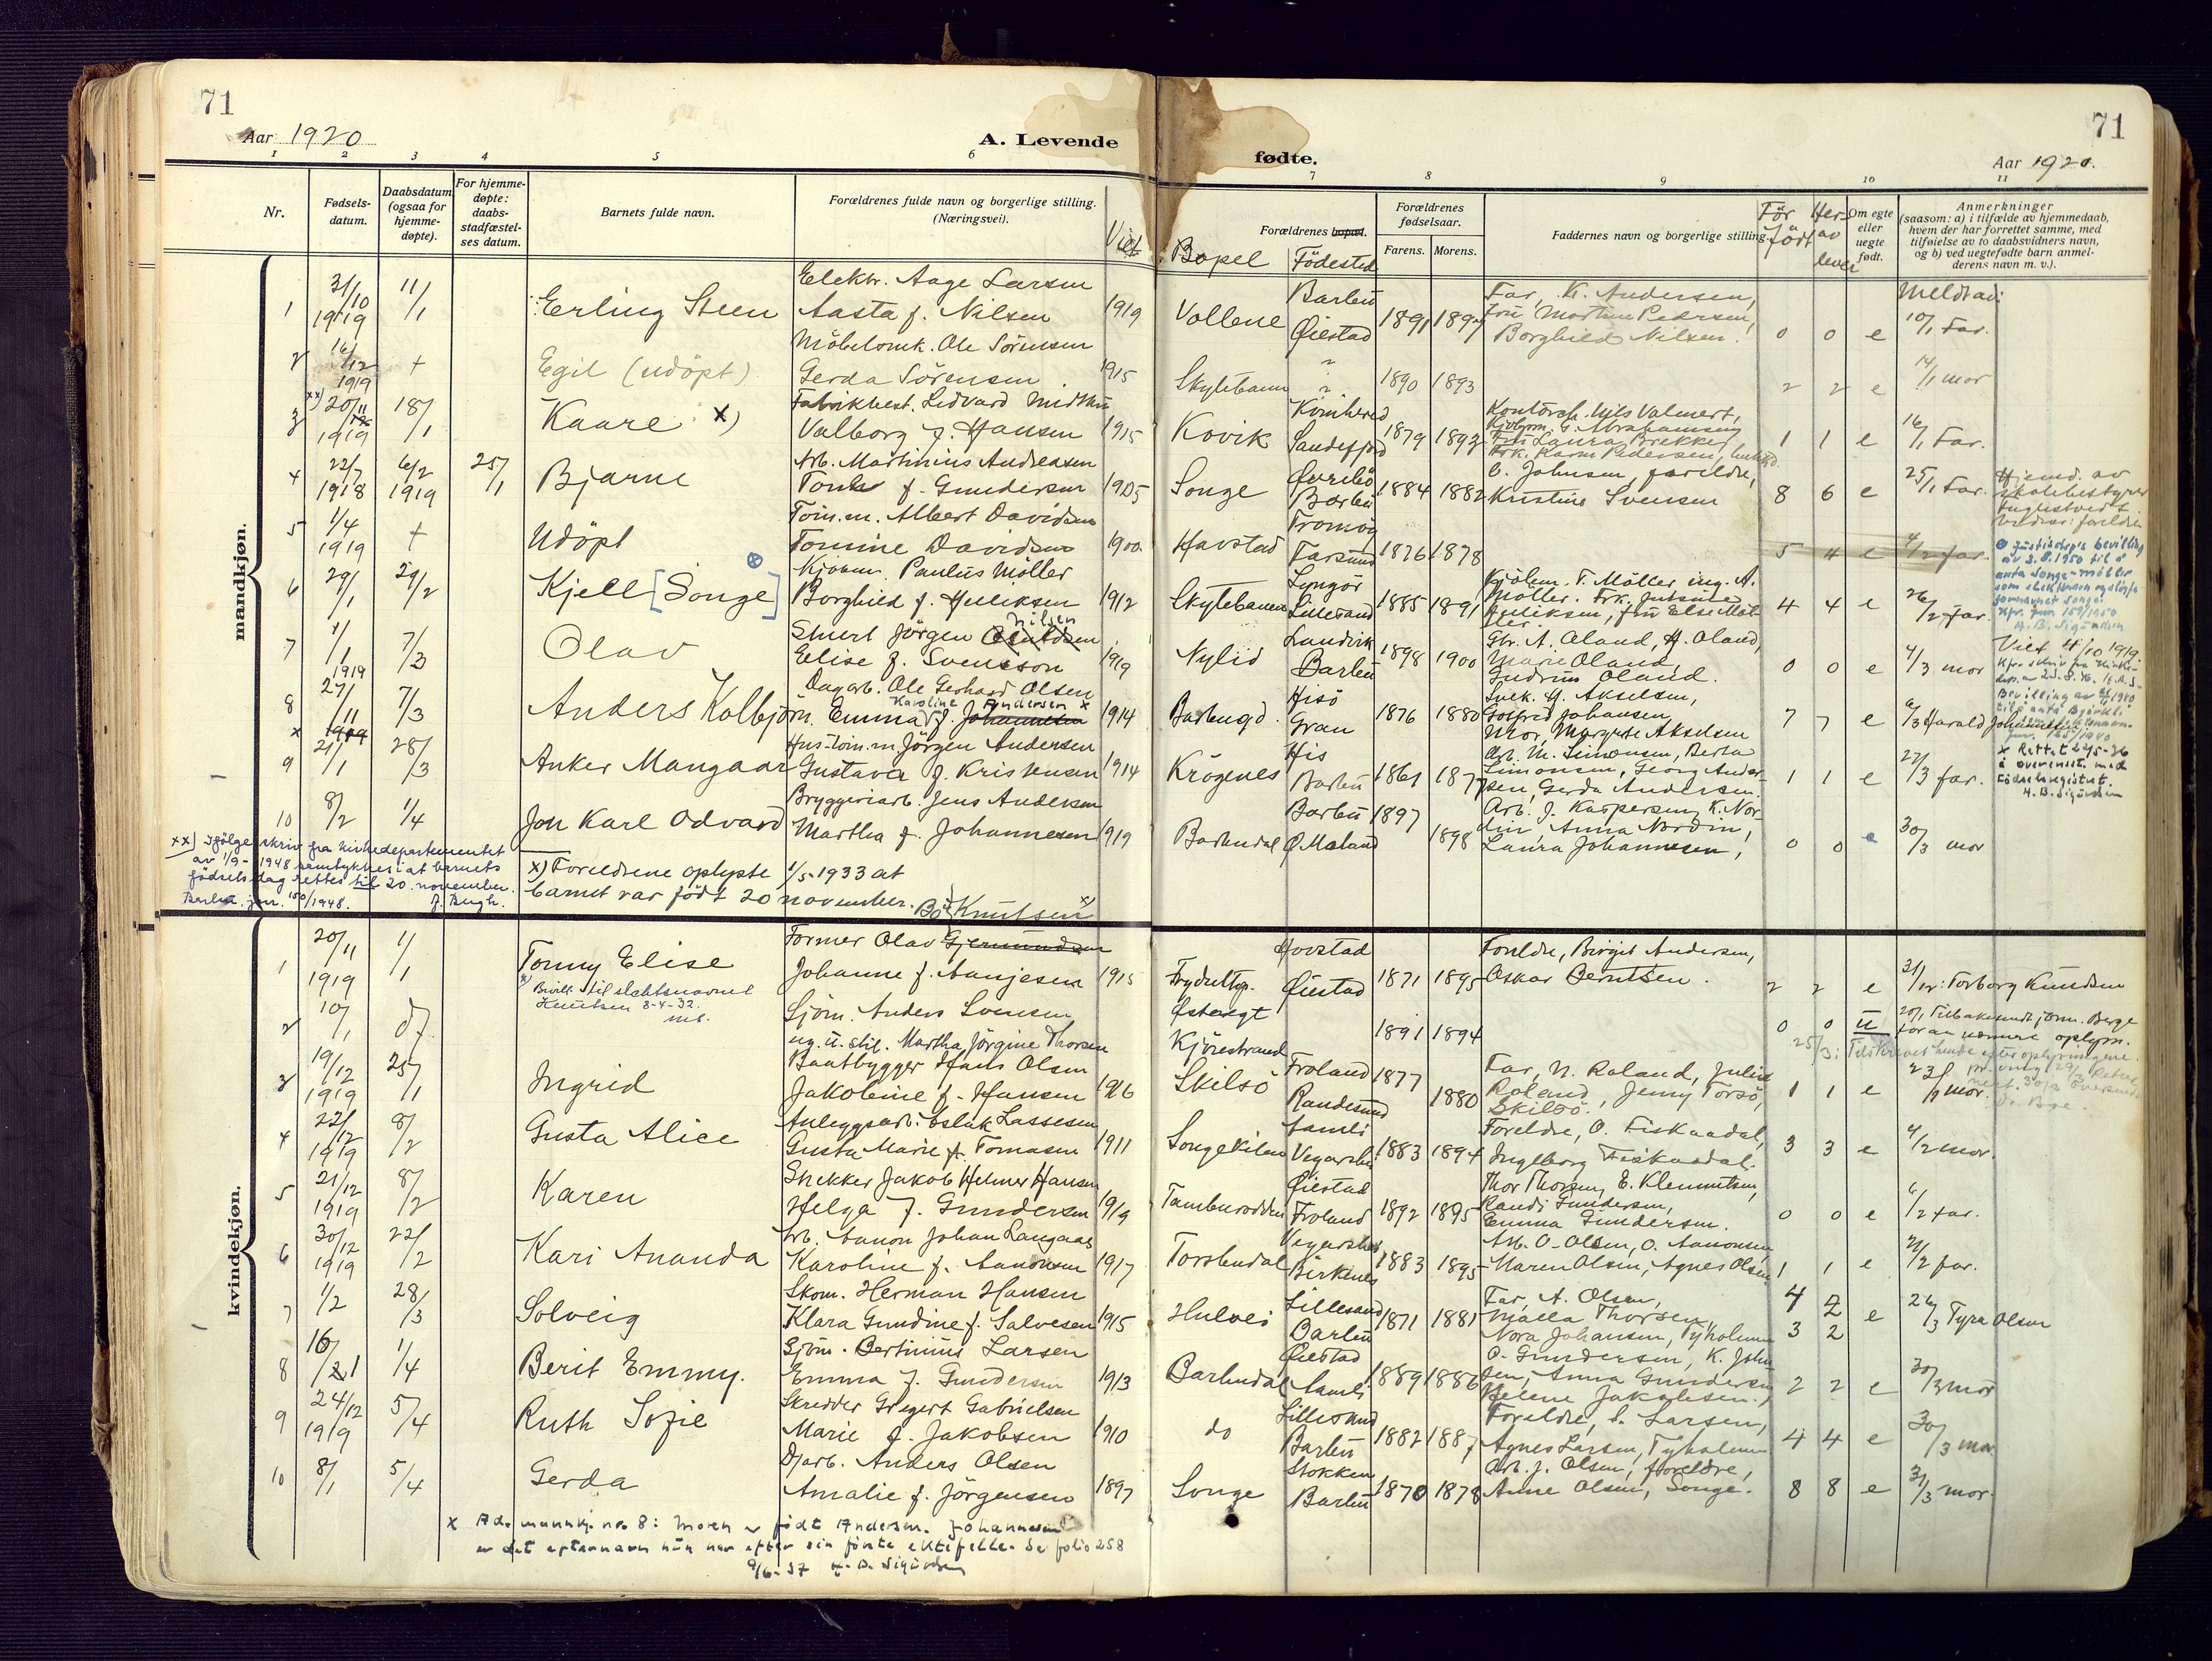 71
Aar 1920
A. Levende
1 2 3 4 5 6
Nr.
Fødsels-
datum.
Daabsdatum
(ogsaa for
hjemme-
døpte).
For hjemme-
døpte:
daabs-
stadfæstel-
ses datum.
Barnets fulde navn.
Forældrenes fulde navn og borgerlige stilling.
(Næringsvei).
Viet
mandkjøn.
Elektr. Aage Larsen
1 31/10 1919 11/1 Erling Steen Aasta f. Nilsen 1919
Möbelsnik. Ole Sörensen
2 16/12 1919 + Egil (udöpt) Gerda Sörensen 1915
Fabrikbest. Ledvard
3 xx) 20/11 1919 18/1 Kaare x) Valborg f. Hansen 1915
Arb. Martinius Andreasen
4 22/7 1918 6/2 1919 25/1 Bjarne f. Gundersen 1905
Tóm.m. Albert Davidsen
5 1/4 1919 + Udöpt Tomine Davidsen 1900
Paulus Möller
6 29/1 29/2 Kjell [Songe] Borghild f. Hulliksen 1912
Nilsen
Stuert Jörgen
7 1/1 7/3 Olav Elise f. Svensson 1919
Dagarb. Ole Gerhard Olsen
Karoline Andersen x
8 27/11 1919 7/3 Anders Kolbjörn. Emma f. Johannesen 1914
Hus-tóm.m Jörgen Andersen
9 21/1 28/3 Anker Mangaar Gustava f. Kristensen 1914
Bryggeriarb. Jens Andersen
10 8/2 1/4 Jon Karl Odvard Martha f. Johannesen 1919
xx) Ifölge skriv fra kirkedepartementet
av 1/9-1948 samtykkes i at barnets
födselsdag rettes til 20. november.
Barbu. jnr. 150/1948. J. Bugh.
x) Foreldrene oplyste 1/5-1933 at
barnet var født 20 november.
kvindekjøn.
Knutsen x)
Former Olav Gjermundsen
1 20/11 1919 1/1 Tonny Elise Johanne f. Aanjesen 1915
x) Bevill. til slektsnavnet
Knutsen 8-4-32.
Sjöm. Anders Svensen
2 10/1 d/7 ug. u. stil. Martha Jörgine Thorsen
Baatbygger Hans Olsen
3 19/12 1919 25/1 Ingrid Jakobine f. Hansen 1916
Anleggsarb. Aslak Lassesen
4 22/12 1919 8/2 Gusta Alice Gusta Marie f. Tomasen 1911
Snekker Jakob Helmer Hansen
5 21/12 1919 8/2 Karen Helga f. Gundersen 1919
Arb. Aanon Johan Langaas
6 30/12 1919 22/2 Kari Ananda Karoline f. Aanonsen 1917
Skom. Herman Hansen
7 1/2 28/3 Solveig Klara Gundine f. Salvesen 1915
Sjöm. Bertinius Larsen
8 16/21 1/4 Berit Emmy. Emma f. Gundersen 1913
Skredder Gregert Gabrielsen
9 24/12 1919 5/4 Ruth Sofie Marie f. Jakobsen 1910
Djarb. Anders Olsen
10 8/1 5/4 Gerda Amalie f. Jörgensen 1897
x Ad. mannkj. nr. 8: Moren er født Andersen. Johannesen
er det efternavn hun har efter sin første ektefelle. Se folio 258
9/6-37 H. B. Sigurdsen
71
fødte.
Aar 1920.
7 8 9 10 11
Forældrenes bopæl.
Bopel Födested
Forældrenes
fødselsaar.
Farens. Morens.
Faddernes navn og borgerlige stilling.
För födt
Her-av lever
Om egte
eller
uegte
født.
Anmerkninger
(saasom: a) i tilfælde av hjemmedaab,
hvem der har forrettet samme, med
tilføielse av to daabsvidners navn,
og b) ved uegtefødte barn anmel-
derens navn m. v.).
Meldt ad:
Barbu Far, K. Andersen,
Vollene Öiestad 1891 Fru Martine Pedersen,
Borghild Nilsen. 0 0 e 10/1 Far.
Skytebanen 1890 1893 2 2 e 14/1 mor
Kontorch. Nils Valmert,
G. Abrahamsen
Kovik Sandefjord 1879 1892 Fru Laura Brekke, 1 1 e 16/1 Far.
Frk. Karen Pedersen,
Songe Barbu 1884 1882 C. Johnsen, foreldre,
Kristine Svensen 8 6 e 25/1 Far. Hjemd. av
skolebestyrer
Tromöy
Havstad Farsund 1876 1878 5 4 e 4/2 far.
Justisdep's bevilling
av 3.8.1950 til å
anta Songe-Möller
som slektsnavn
Jnr 159/1950
H. B. Sigurdsen
Lyngör T. Möller
Skytebanen Lillesand 1885 1891 4 4 e 26/2 far.
Landvik Gbr. A. Oland, H. Oland,
Nylid Barbu 1898 1900 Marie Oland,
Gudrun Oland. 0 0 e 4/3 mor
Viet 4/10 1919.
Hisö Snek. H. Akselsen,
Barbugd. Gran 1876 1880 Gotfred Johansen,
Mor, Margrete Akselsen 7 7 e 6/3 Harald Johannesen
His Arb. M. Simonsen, Berta
Krögenes Barbu 1861 1877 Simonsen, Georg Ander-
sen, Gerda Andersen. 1 1 e 27/3 far.
x Rettet 22/5-36
i overenst. med
födselsregistret.
H. B. Sigurdsen
Barbu 1897 Arb. J. Kaspersen, K. Nor-
din Anna Nordin,
Barbudal Ö Moland 1898 Laura Johannesen, 0 0 e 30/3 mor
Hovstad Foreldre, Birgit Andersen,
Öiestad 1871 1895 Oskar Berntsen. 2 2 e 31/12: Torborg Knudsen
Österegt
Kjörestrand 1891 1894 0 0 u 20/1 Tilbakesendt jorm. Berge
for aa nermere oplysn.
25/3: Tilskrevet hende efter oplysningene.
Froland Far, N. Roland, Julie
Skilsö Randesund 1877 1880 Roland, Jenny Torsö,
Skilsö. 1 1 e 23/1 mor.
Aamli Foreldre, O. Fiskaadal,
Songekilen Vegarshei 1883 1894 Ingeborg Fiskaadal. 3 3 e 4/2 mor.
Öiestad Thor Thorsen, E. Klemmetsen,
Tamburodden Froland 1892 1895 Randi Gundersen,
Emma Gundersen. 0 0 e 6/2 far.
Vegarshei Arb. O. Olsen, O. Aanonsen
Torsbudal Birkenes 1883 1895 Maren Olsen, Agnes Olsen 1 1 e 21/2 far.
Lillesand Far, A. Olsen,
Hulvei Barbu 1871 1881 Malla Thorsen,
Nora Johansen, Tyholmen 4 2 3 2 e 26/3 Tyra Olsen
Öiestad O. Gundersen, K. John-
Barbudal Aamli 1889 1886 sen, Anna Gundersen
Helene Jakobsen. 2 2 e 30/3 mor
Lillesand Foreldre, S. Larsen,
do Barbu 1882 1887 Agnes Larsen, Tyholmen 4 4 e 30/3 mor.
Stokken Arb. J. Olsen, foreldre,
Songe Barbu 1870 1878 Anne Olsen, Songe. 8 8 e 31/3 mor.